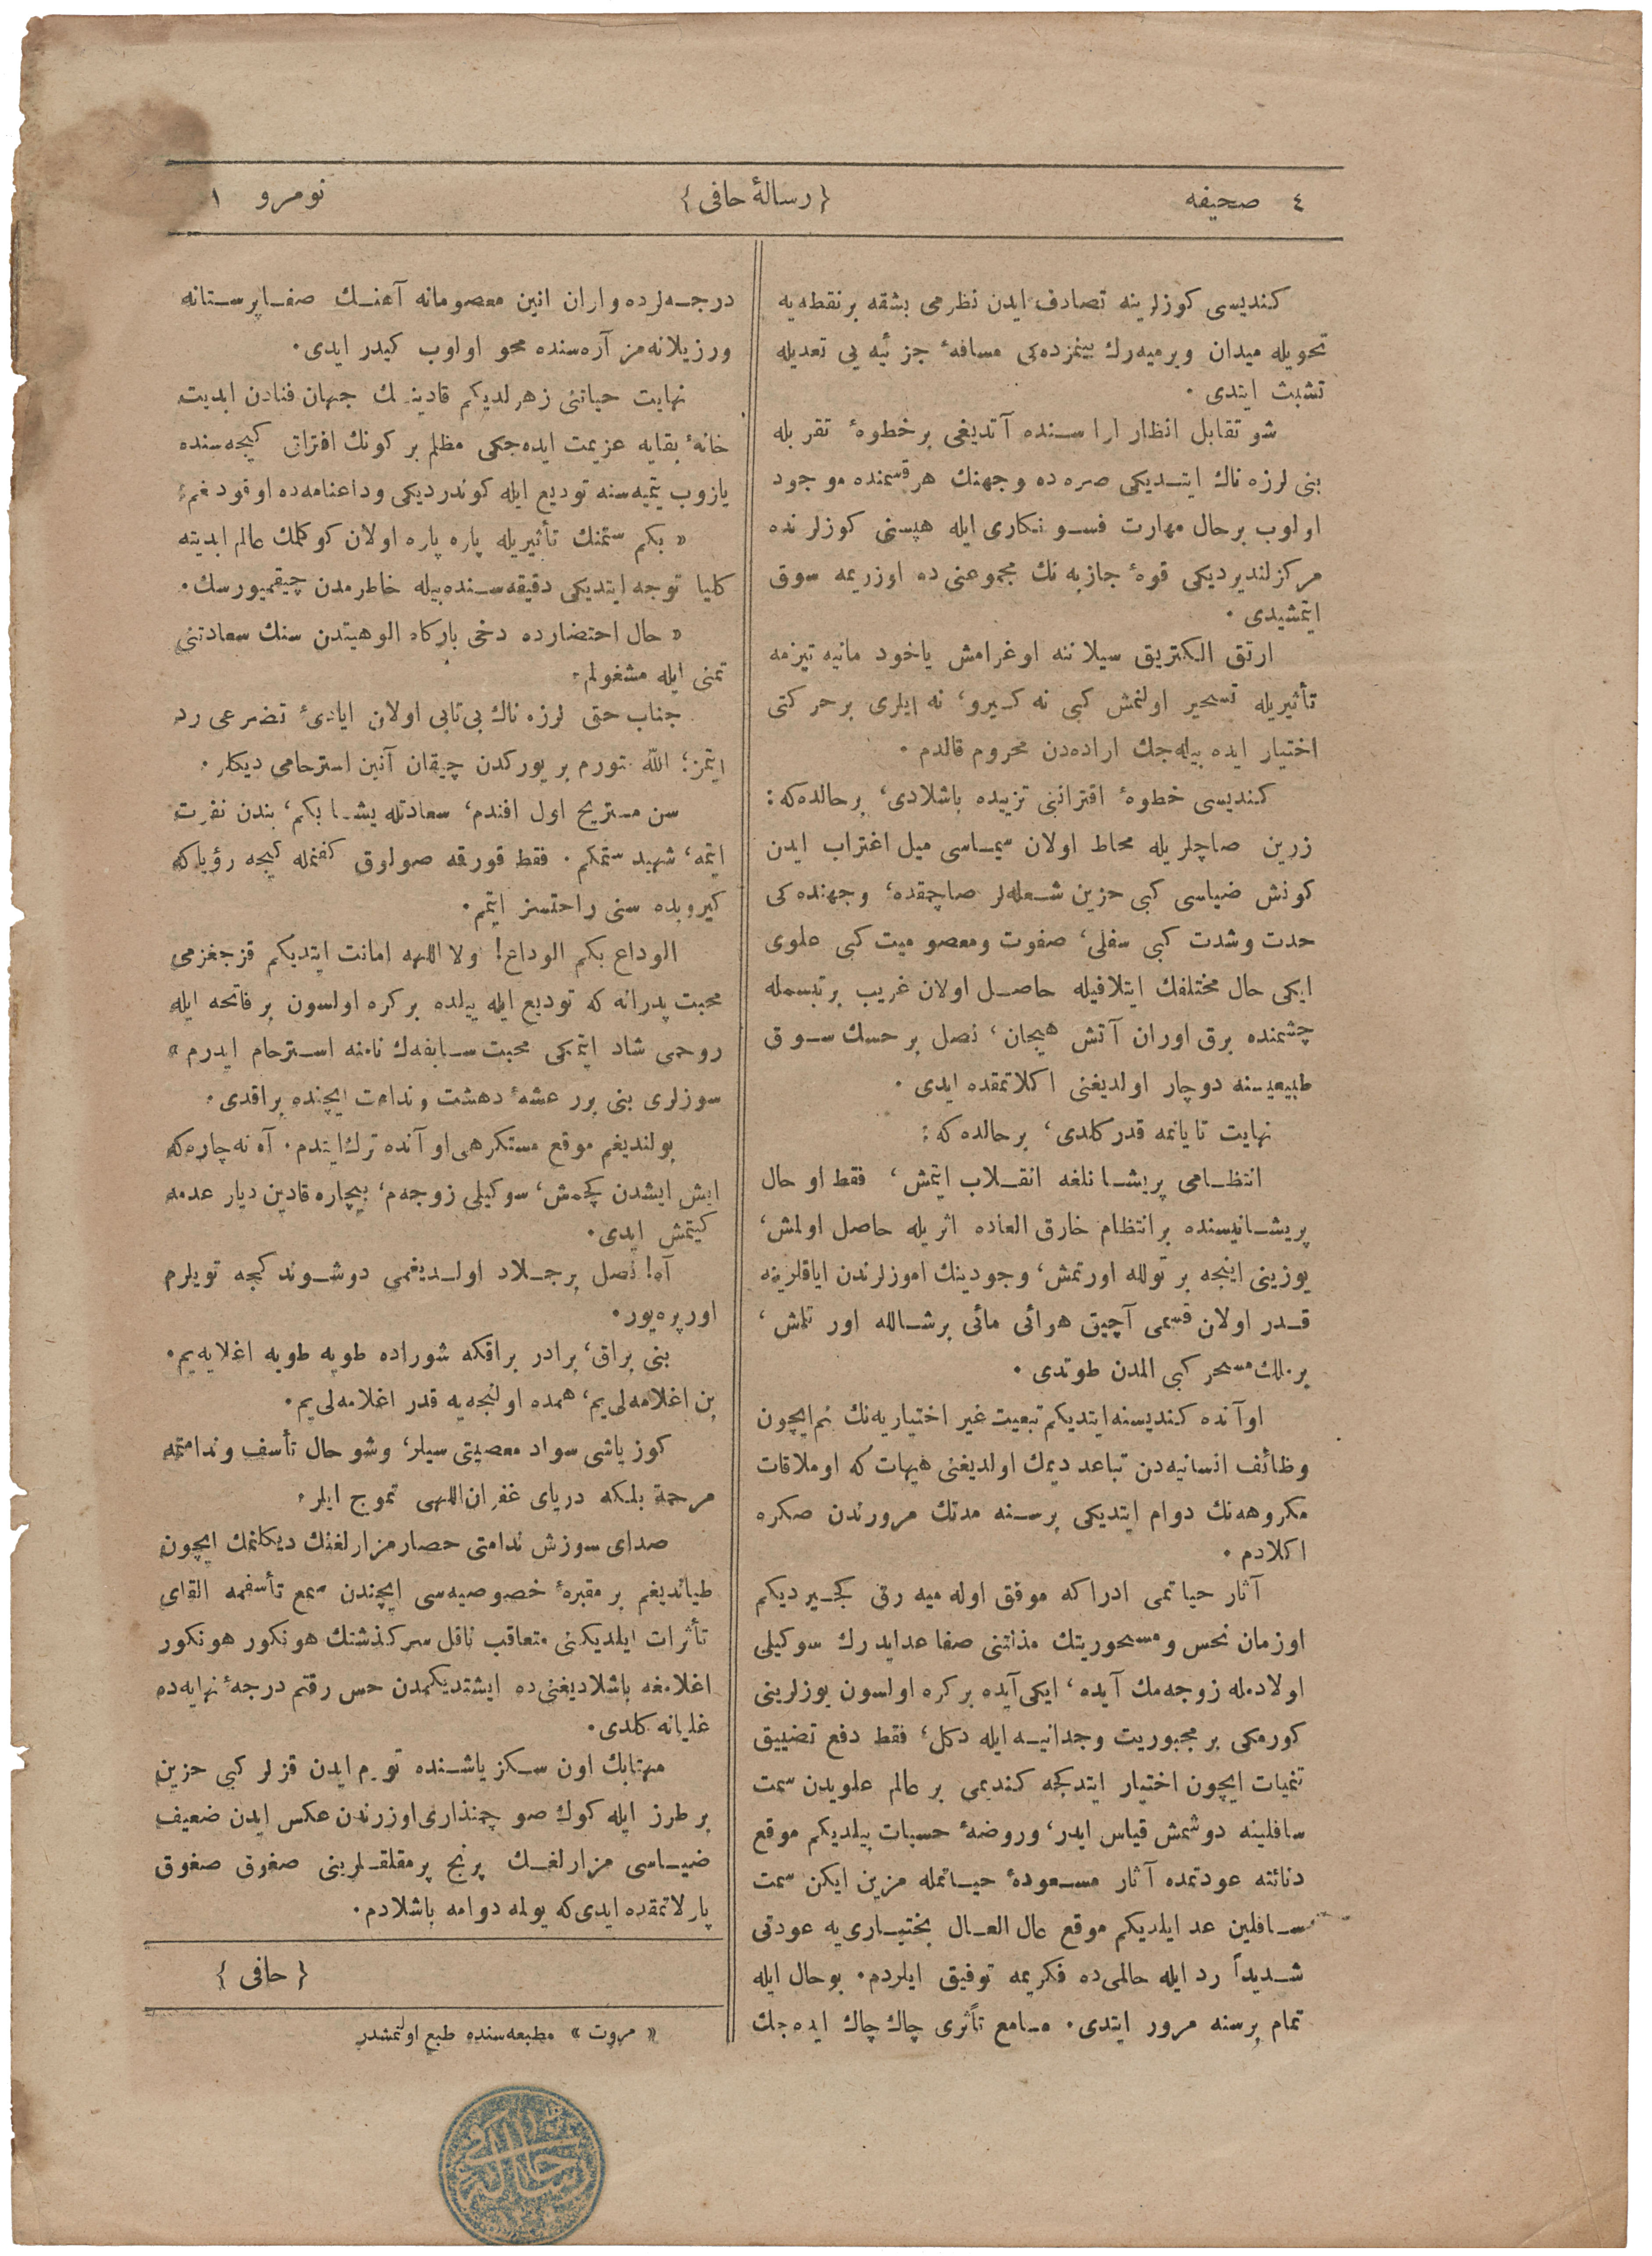 ٤ صحيفه
{ رسالهٔ حافى }
نومرو ١
كنديسى كوزلرينه تصادف ايدن نظرمى بشقه بر نقطه‌يه
تحويله ميدان ويرميه‌رك بينمزده‌كى مسافهٔ جزئيه يى تعديله
تشبث ايتدى .
شو تقابل انظار اراسنده آتديغى بر خطوهٔ تقربله
بنى لرزه ناك ايتديكى صره ده وجهنك هر قسمنده موجود
اولوب بر حال مهارت فسونكارى ايله هپسنى كوزلرنده
مركزلنديرديكى قوهٔ جازبه نك مجموعنى ده اوزريمه سوق
ايتمشيدى .
ارتق الكتريق سيلاننه اوغرامش ياخود مانيه تيزمه
تأثيريله تسحير اولنمش كبى نه كيرو، نه ايلرى بر حركتى
اختيار ايده بيله‌جك اراده‌دن محروم قالدم .
كنديسى خطوهٔ اقتراننى تزييده باشلادى، بر حالده‌كه :
زرين صاچلريله محاط اولان سيماسى ميل اغتراب ايدن
كونش ضياسى كبى حزين شعله‌لر صاچمقده، وجهنده‌كى
حدت وشدت كبى سفلى، صفوت ومعصوميت كبى علوى
ايكى حال مختلفك ايتلافيله حاصل اولان غريب بر تبسمله
چشمنده برق اوران آتش هيجان، نصل بر حسك سوق
طبيعيسنه دوچار اولديغنى اكلاتمقده ايدى .
نهايت تا يانمه قدر كلدى، بر حالده كه :
انتظامى پريشانلغه انقلاب ايتمش، فقط او حال
پريشانيسنده بر انتظام خارق العاده اثريله حاصل اولمش،
يوزينى اينجه بر توللله اورتمش، وجودينك اموزلرندن اياقلرينه
قدر اولان قسمى آچيق هوائى مائى بر شالله اورتلمش،
بر ملك مسحر كبى المدن طوتدى .
او آنده كنديسنه ايتديكم تبعيت غير اختياريه‌نك نم‌ايچون
وظائف انسانيه‌دن تباعد ديمك اولديغنى هيهات كه او ملاقات
مكروهه‌نك دوام ايتديكى برسنه مدتك مرورندن صكره
اكلادم .
آثار حياتمى ادراكه موفق اوله ميه رق كچيرديكم
اوزمان نحس ومسحوريتك مذاتنى صفا عدايدرك سوكيلى
اولادمله زوجه‌مك آيده، ايكى آيده بر كره اولسون يوزلرينى
كورمكى بر مجبوريت وجدانيه ايله دكل، فقط دفع تضييق
تمنيات ايچون اختيار ايتدكجه كنديمى بر عالم علويدن سمت
سافلينه دوشمش قياس ايدر، وروضهٔ حسيات بيلديكم موقع
دنائته عودتمده آثار مسعودهٔ حياتمله مزين ايكن سمت
سافلين عد ايلديكم موقع عال العال بختيارى‌يه عودتى
شديداً رد ايله حالمى‌ده فكريمه توفيق ايلردم . بو حال ايله
تمام برسنه مرور ايتدى . مسامع تأثرى چاك چاك ايده‌جك
درجه‌لرده واران انين معصومانه آهنك صفاپرستانه
ورزيلانه‌مز آره‌سنده محو اولوب كيدر ايدى .
نهايت حياتنى زهرلديكم قادينك جهان فنادن ابديت
خانهٔ بقايه عزيمت ايده‌جكى مظلم بر كونك افتراق كيجه‌سنده
يازوب يتيمه‌سنه توديع ايله كوندرديكى وداعنامه‌ده اوقودغم :
« بكم ستمنك تأثيريله پاره پاره اولان كوكلمك عالم ابديته
كليا توجه ايتديكى دقيقه‌سنده‌بيله خاطرمدن چيقميورسك .
« حال احتضارده دخى باركاه الوهيتدن سنك سعادتنى
تمنى ايله مشغولم .
جناب حتى لرزه ناك بى‌تابى اولان ايادىٔ تضرعى رد
ايتمز؛ الله متورم بر يوركدن چيقان آنين استرحامى ديكلر .
سن مستريح اول افندم، سعادتله يشا بكم، بندن نفرت
ايتمه، شهيد ستمكم . فقط قورقه صولوق كفنمله كيجه رؤياكه
كيروبده سنى راحتسز ايتمم .
الوداع بكم الوداع ! ولا اللهه امانت ايتديكم قزجغزمى
محبت پدرانه كه توديع ايله ييلده بر كره اولسون بر فاتحه ايله
روحمى شاد ايتمكى محبت سابقه‌ك نامنه استرحام ايدرم »
سوزلرى بنى برر عشهٔ دهشت وندامت ايچنده براقدى .
بولنديغم موقع مستكرهى او آنده ترك ايتدم . آه نه چاره‌كه
ايش ايشدن كچمش، سوكيلى زوجه‌م، بيچاره قادين ديار عدمه
كيتمش ايدى .
آه ! نصل بر جلاد اولديغمى دوشوندكجه تويلرم
اورپره‌يور .
بنى براق، برادر براقكه شوراده طويه طويه اغلايه‌يم .
بن اغلامه‌لى‌يم، همده اولنجه‌يه قدر اغلامه‌لى‌يم .
كوز ياشى سواد معصيتى سيلر، وشو حال تأسف وندامتمه
مرحمة بلكه درياى غفران‌اللهى تموج ايلر .
صداى سوزش ندامتى حصار مزارلغنك ديكلنمك ايچون
طيانديغم بر مقبرهٔ خصوصيه‌سى ايچندن سمع تأسفمه القاى
تأثرات ايلديكنى متعاقب ناقل سركذشتك هونكور هونكور
اغلامغه باشلاديغنى‌ده ايشتديكمدن حس رقتم درجهٔ نهايه‌ده
غليانه كلدى .
مهتابك اون سكز ياشنده تورم ايدن قزلر كبى حزين
بر طرز ايله كوك صو چمنذارى اوزرندن عكس ايدن ضعيف
ضياسى مزارلغك پرنج پرمقلقلرينى صغوق صغوق
پارلاتمقده ايدى‌كه يولمه دوامه باشلادم .
{ حافى }
« مروت » مطبعه‌سنده طبع اولنمشدر